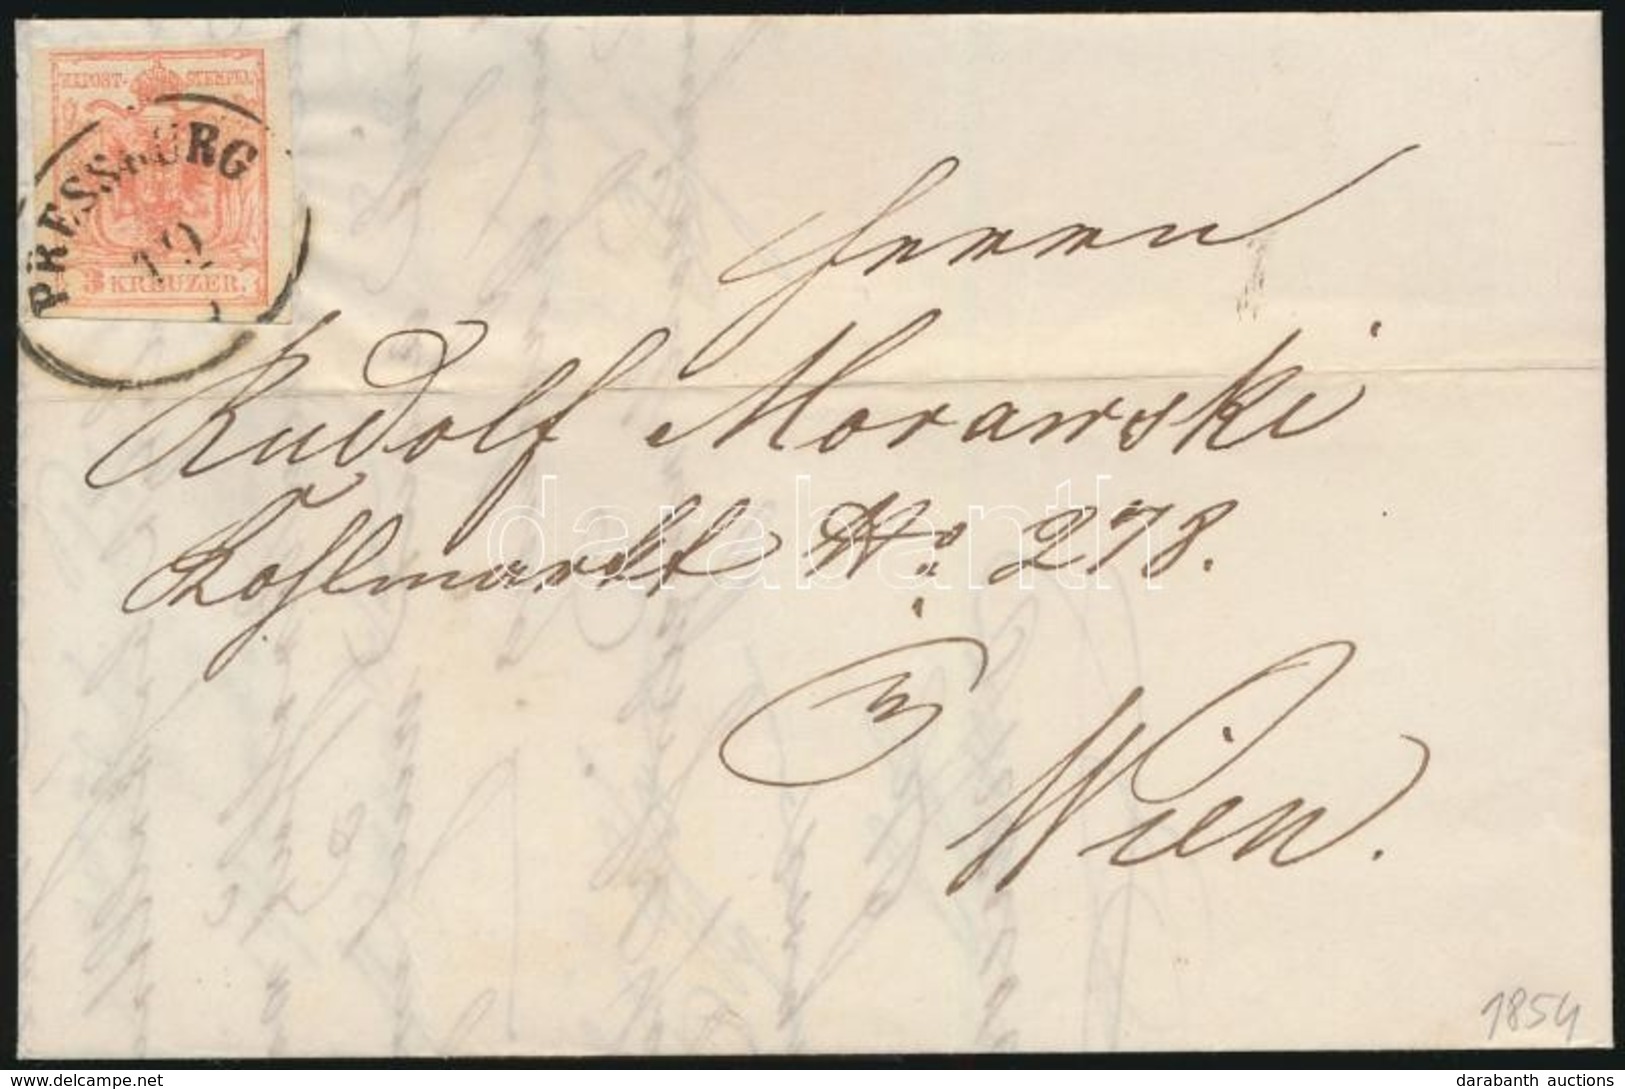 KKPOST-STEMPEL
PRESSBURG
19
3 KREUZER.
Herrn
Rudolf Morawski
Kohlmarkt No. 278.
Wien.
darabanth
1854
www.delcampe.net
darabanth auctions